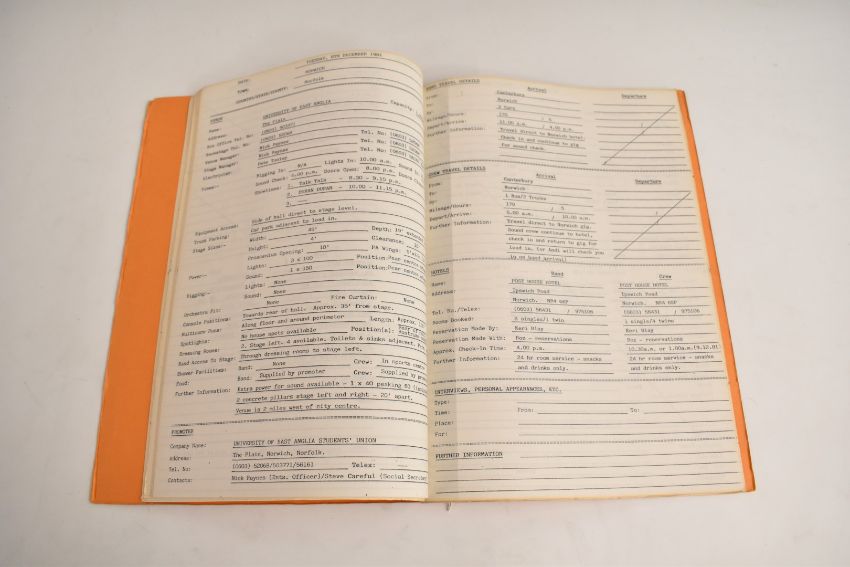 DATE: TUESDAY, 8TH DECEMBER 1981
TOWN: NORWICH
COUNTRY/STATE/COUNTY: Norfolk
VENUE
Name: UNIVERSITY OF EAST ANGLIA Capacity:
Address: The Plain
Box Office Tel. No: Tel. No: (0603)
Backstage Tel. No: Tel. No: (0603)
Venue Manager: Nick Paynes Tel. No: (0603)
Stage Manager: Nick Paynes
Electrician: Pete
Times:- Rigging In: N/A Lights In: 10.00 a.m. Sound In:
Sound Check: 5.00 p.m. Doors Open: 8.00 p.m. Doors
Showtimes: 1. Talk Talk - 8.30 - 9.15 p.m.
2. DURAN DURAN - 10.00 - 11.15 p.m.
3.
Equipment Access: Side of hall direct to stage level.
Truck Parking: Car park adjacent to load in.
Stage Sizes:- Width: 40' Depth: 19'
Height: 4' Clearance:
Proscenium Opening: 10' PA Wings:
Power:- Lights: 3 x 100 Position: Rear centre
Sound: 1 x 100 Position: Rear centre
Rigging:- Lights: None
Sound: None
Orchestra Pit: None Fire Curtain: None
Console Positions: Towards rear of hall. Approx. 95' from stage.
Multicore Runs: Along floor and around perimeter Length: Approx.
Spotlights: No house spots available Position(s): Rear of
Dressing Rooms: 2. Stage left. 4 available. Toilets & sinks adjacent.
Road Access To Stage: Through dressing rooms to stage left.
Shower Facilities: Band: None Crew: In sports centre
Food: Band: Supplied by promoter Crew: Supplied by
Further Information: Extra power for sound available - 1 x 60
2 concrete pillars stage left and right - 20' apart.
Venue is 2 miles west of city centre.
PROMOTER
Company Name: UNIVERSITY OF EAST ANGLIA STUDENTS' UNION
Address: The Plain, Norwich, Norfolk.
Tel. No: (0603) 52068/503771/56161 Telex:
Contacts: Nick Paynes (Ents. Officer)/Steve Careful (Social
BAND TRAVEL DETAILS
Arrival Departure
From: Canterbury
To: Norwich
By: 2 Cars
Mileage/Hours: 170 / 5
Depart/Arrive: 11.00 a.m. / 4.00 p.m.
Further Information: Travel direct to Norwich hotel.
Check in and continue to gig
for sound check.
CREW TRAVEL DETAILS
Arrival Departure
From: Canterbury
To: Norwich
By: 1 Bus/2 Trucks
Mileage/Hours: 170 / 5
Depart/Arrive: 5.00 a.m. / 10.00 a.m.
Further Information: Travel direct to Norwich gig.
Sound crew continue to hotel,
check in and return to gig for
load in. (or Andi will check you
in on band arrival)
HOTELS
Band Crew
Name: POST HOUSE HOTEL POST HOUSE HOTEL
Address: Ipswich Road Ipswich Road
Norwich. NR4 6EP Norwich. NR4 6EP
Tel. No./Telex: (0603) 56431 / 975106 (0603) 56431 / 975106
Rooms Booked: 8 singles/1 twin 1 single/4 twins
Reservation Made By: Keri Blay Keri Blay
Reservation Made With: Roz - reservations Roz - reservations
Approx. Check-In Time: 4.00 p.m. 10.30a.m. or 1.00a.m.(9.12.81)
Further Information: 24 hr room service - snacks 24 hr room service - snacks
and drinks only. and drinks only.
INTERVIEWS, PERSONAL APPEARANCES, ETC.
Type:
Time: From: To:
Place:
For:
FURTHER INFORMATION